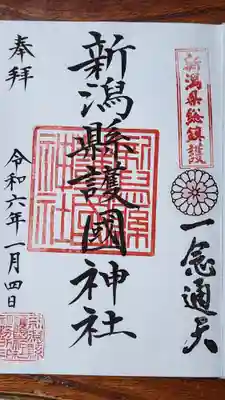 新潟県総鎮護
一念通天
新潟縣護國神社
奉拝
令和六年一月四日